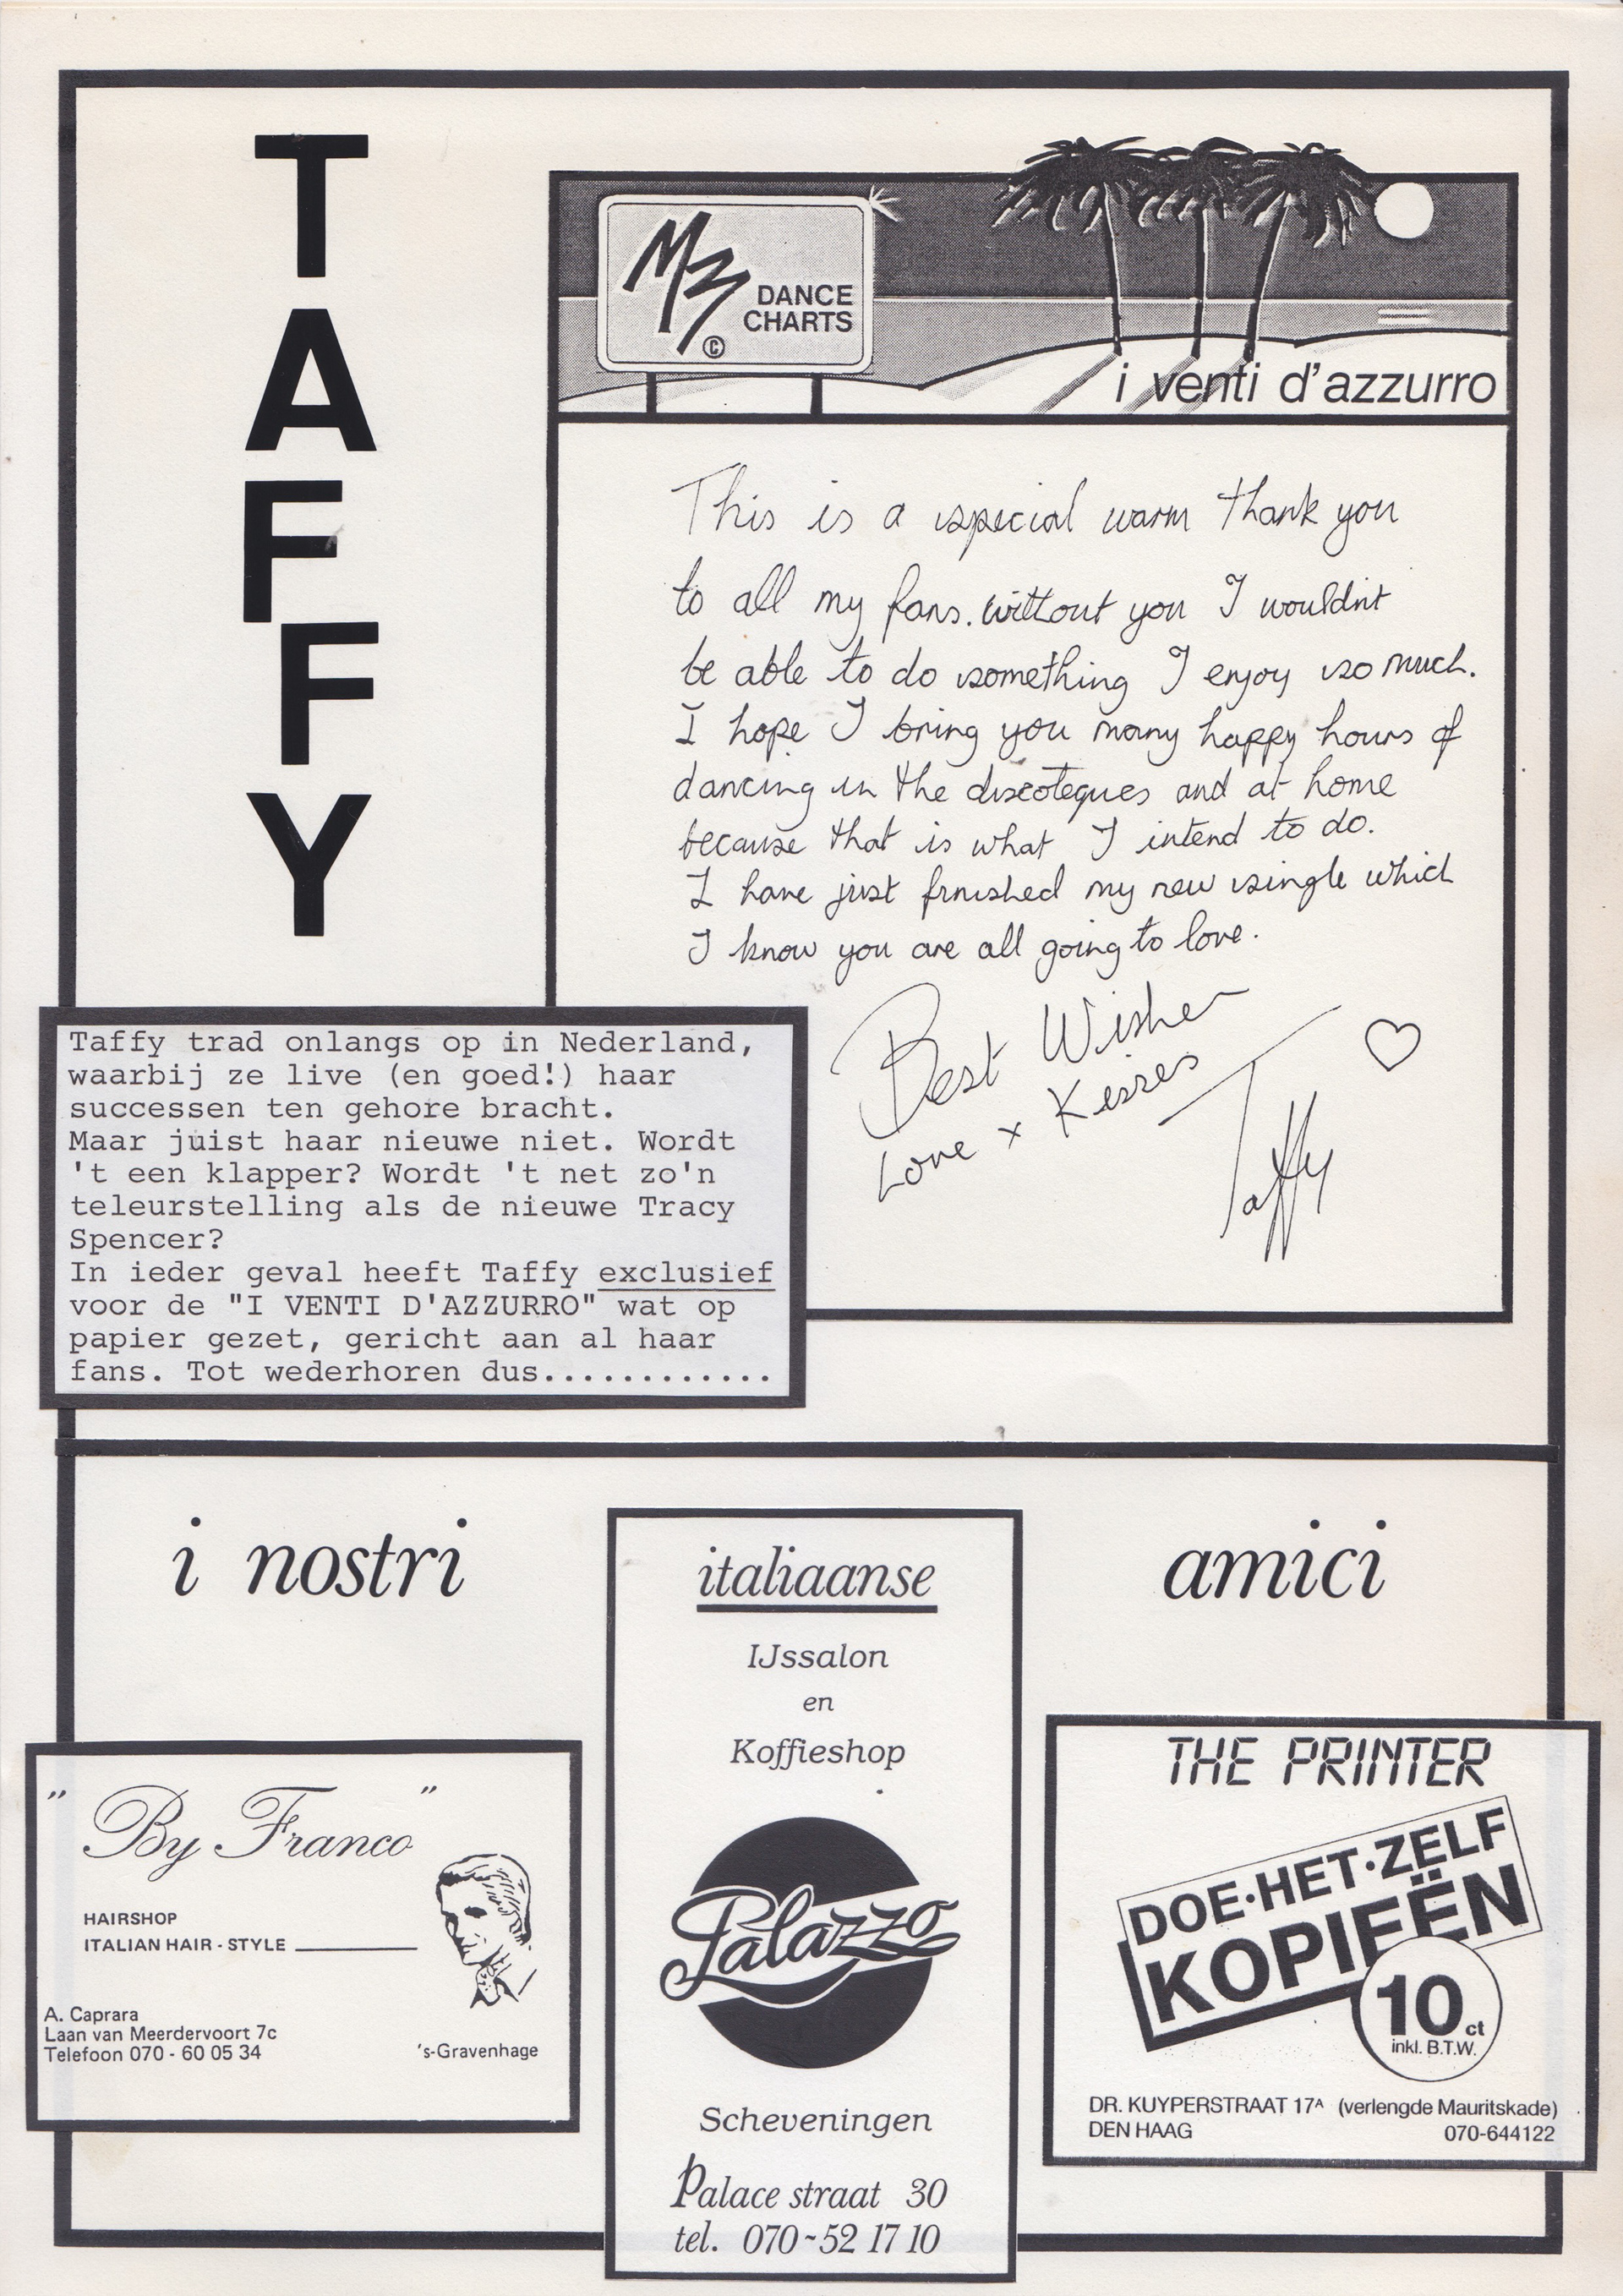 TAFFY
MZ DANCE
CHARTS
©
i venti d'azzurro
This is a special warm thank you
to all my fans. without you I wouldn't
be able to do something I enjoy so much.
I hope I bring you many happy hours of
dancing in the discoteques and at home
because that is what I intend to do.
I have just finished my new single which
I know you are all going to love.
Best Wishes
Love x Kisses
Taffy ♡
Taffy trad onlangs op in Nederland,
waarbij ze live (en goed!) haar
successen ten gehore bracht.
Maar juist haar nieuwe niet. Wordt
't een klapper? Wordt 't net zo'n
teleurstelling als de nieuwe Tracy
Spencer?
In ieder geval heeft Taffy exclusief
voor de "I VENTI D'AZZURRO" wat op
papier gezet, gericht aan al haar
fans. Tot wederhoren dus............
i nostri
amici
" By Franco "
HAIRSHOP
ITALIAN HAIR - STYLE
A. Caprara
Laan van Meerdervoort 7c
Telefoon 070 - 60 05 34
's-Gravenhage
italiaanse
IJssalon
en
Koffieshop
Palazzo
Scheveningen
Palace straat 30
tel. 070~52 17 10
THE PRINTER
DOE·HET·ZELF
KOPIEËN
10 ct
inkl. B.T.W.
DR. KUYPERSTRAAT 17A (verlengde Mauritskade)
DEN HAAG 070-644122